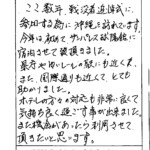 ここ数年、戦没者追悼式に
参加する為に沖縄を訪れています。
今年は初めてサンパレス球陽館に
宿泊させて頂きました。
県庁やゆいレールの駅にも近く、
また、国際通りも近くて、とても
助かりました。
ホテルの方々の対応も非常に良くて
気持ち良く過ごす事が出来ました。
また機会があったら利用させて
頂きたいと思います。